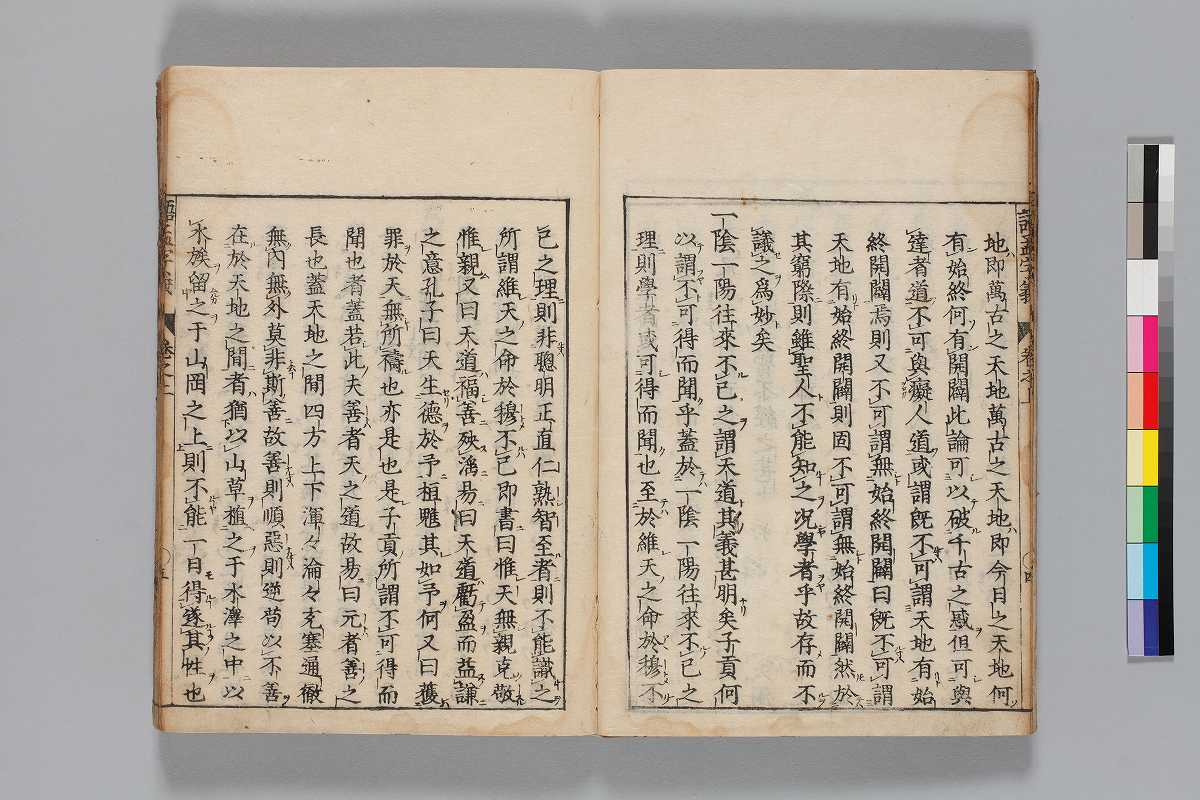 地即萬古之天地萬古之天地即今日之天地何
有始終何有開闢此論可以破千古之惑但可與
達者道不可與癡人道或謂既不可謂天地有始
終開闢焉則又不可謂無始終開闢曰既不可謂
天地有始終開闢則固不可謂無始終開闢然於
其窮際則雖聖人不能知之況學者乎故存而不
議之爲妙矣
一陰一陽往來不已之謂天道其義甚明矣子貢何
以謂不可得而聞乎蓋於一陰一陽往來不已之
理則學者或可得而聞也至於維天之命於穆不
已之理則非聰明正直仁熟智至者則不能識之
所謂維天之命於穆不已即書曰惟天無親克敬
惟親又曰天道福善殃淫易曰天道虧盈而益謙
之意孔子曰天生德於予桓魋其如予何又曰獲
罪於天無所禱也亦是也是子貢所謂不可得而
聞也者蓋若此夫善者天之道故易曰元者善之
長也蓋天地之間四方上下渾々淪々充塞通徹
無內無外莫非斯善故善則順惡則逆苟以不善
在於天地之間者猶以山草植之于水澤之中以
水族留之于山岡之上則不能一日得遂其性也
語孟字義 卷之上